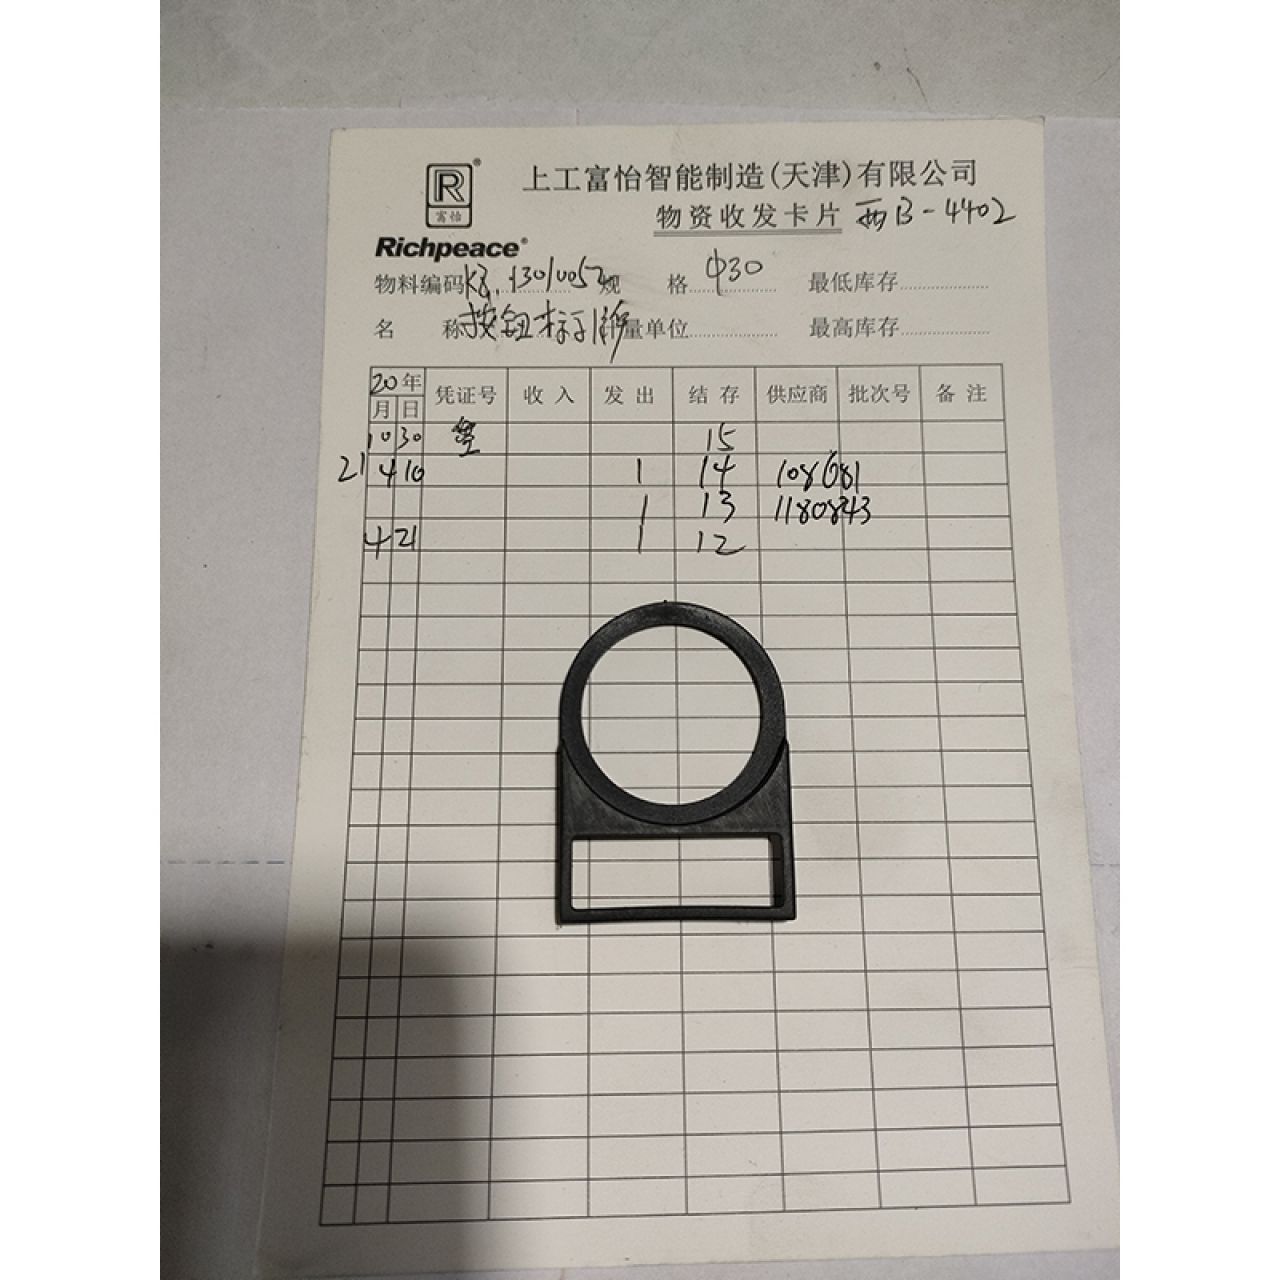 上工富怡智能制造(天津)有限公司
R® 富怡
物资收发卡片 西B-4402
Richpeace®
物料编码 规格 Φ30 最低库存
名称 按钮标 计量单位 最高库存
20年 凭证号 收入 发出 结存 供应商 批次号 备注
月 日
10 30 15
21 4 10 1 14 108681
1 13 1180843
4 21 1 12